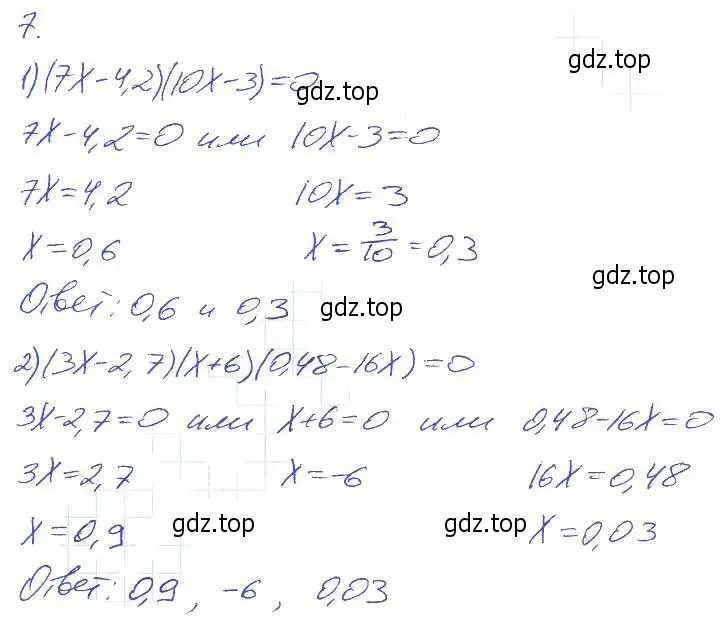 7.
gdz.top
1) (7x-4,2)(10x-3)=0
gdz.top
7x-4,2=0 или 10x-3=0
7x=4,2 10x=3
x=0,6 x=3/10=0,3
gdz.top
Ответ: 0,6 и 0,3
gdz.top
2) (3x-2,7)(x+6)(0,48-16x)=0
3x-2,7=0 или x+6=0 или 0,48-16x=0
3x=2,7 x=-6 16x=0,48
x=0,9 gdz.top gdz.top x=0,03
Ответ: 0,9, -6, 0,03
gdz.top